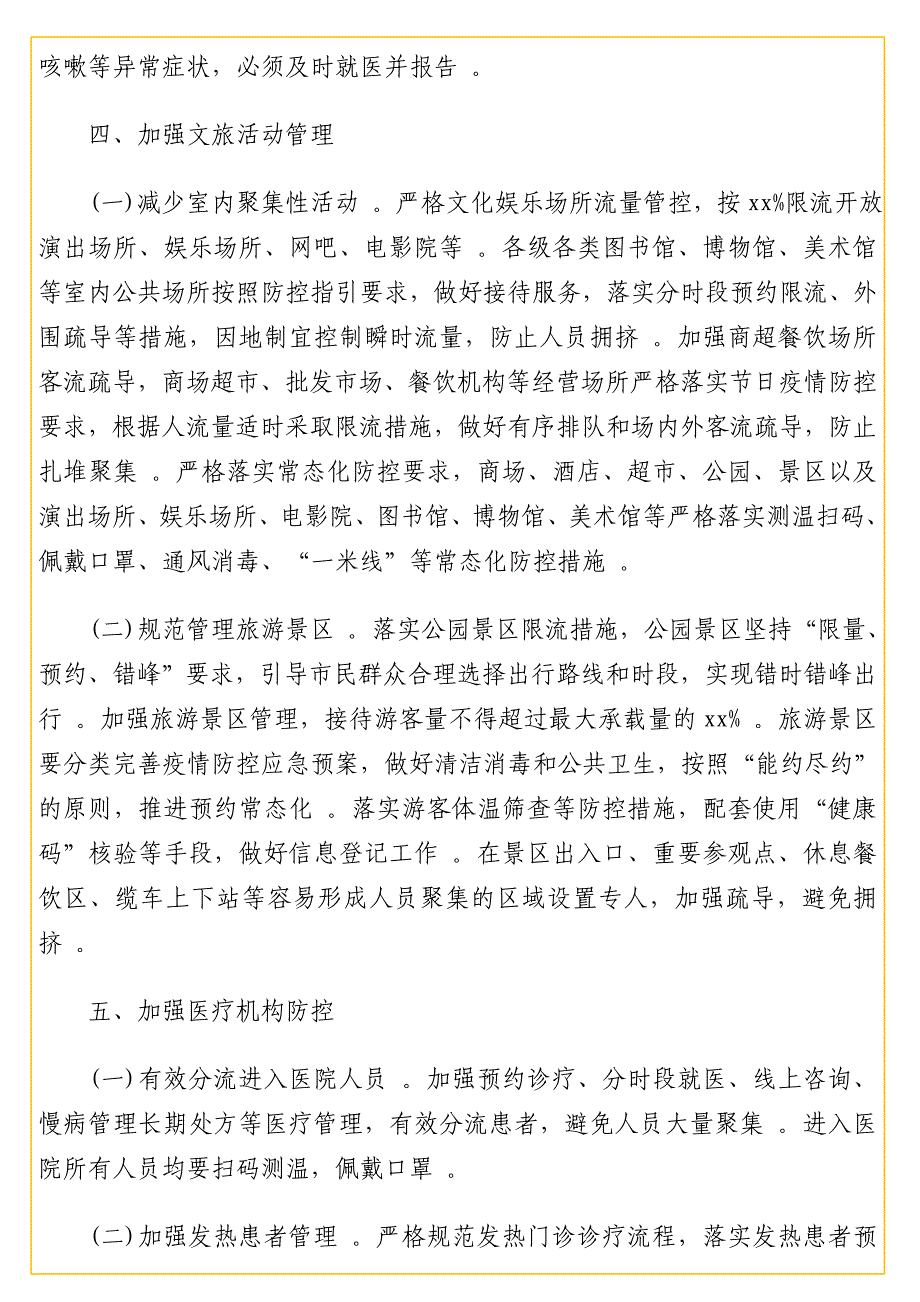 咳嗽等异常症状，必须及时就医并报告 。
四、加强文旅活动管理
(一)减少室内聚集性活动 。严格文化娱乐场所流量管控，按 xx%限流开放
演出场所、娱乐场所、网吧、电影院等 。各级各类图书馆、博物馆、美术馆
等室内公共场所按照防控指引要求，做好接待服务，落实分时段预约限流、外
围疏导等措施，因地制宜控制瞬时流量，防止人员拥挤 。加强商超餐饮场所
客流疏导，商场超市、批发市场、餐饮机构等经营场所严格落实节日疫情防控
要求，根据人流量适时采取限流措施，做好有序排队和场内外客流疏导，防止
扎堆聚集 。严格落实常态化防控要求，商场、酒店、超市、公园、景区以及
演出场所、娱乐场所、电影院、图书馆、博物馆、美术馆等严格落实测温扫码、
佩戴口罩、通风消毒、“一米线”等常态化防控措施 。
(二)规范管理旅游景区 。落实公园景区限流措施，公园景区坚持“限量、
预约、错峰”要求，引导市民群众合理选择出行路线和时段，实现错时错峰出
行 。加强旅游景区管理，接待游客量不得超过最大承载量的 xx% 。旅游景区
要分类完善疫情防控应急预案，做好清洁消毒和公共卫生，按照“能约尽约”
的原则，推进预约常态化 。落实游客体温筛查等防控措施，配套使用“健康
码”核验等手段，做好信息登记工作 。在景区出入口、重要参观点、休息餐
饮区、缆车上下站等容易形成人员聚集的区域设置专人，加强疏导，避免拥
挤 。
五、加强医疗机构防控
(一)有效分流进入医院人员 。加强预约诊疗、分时段就医、线上咨询、
慢病管理长期处方等医疗管理，有效分流患者，避免人员大量聚集 。进入医
院所有人员均要扫码测温，佩戴口罩 。
(二)加强发热患者管理 。严格规范发热门诊诊疗流程，落实发热患者预